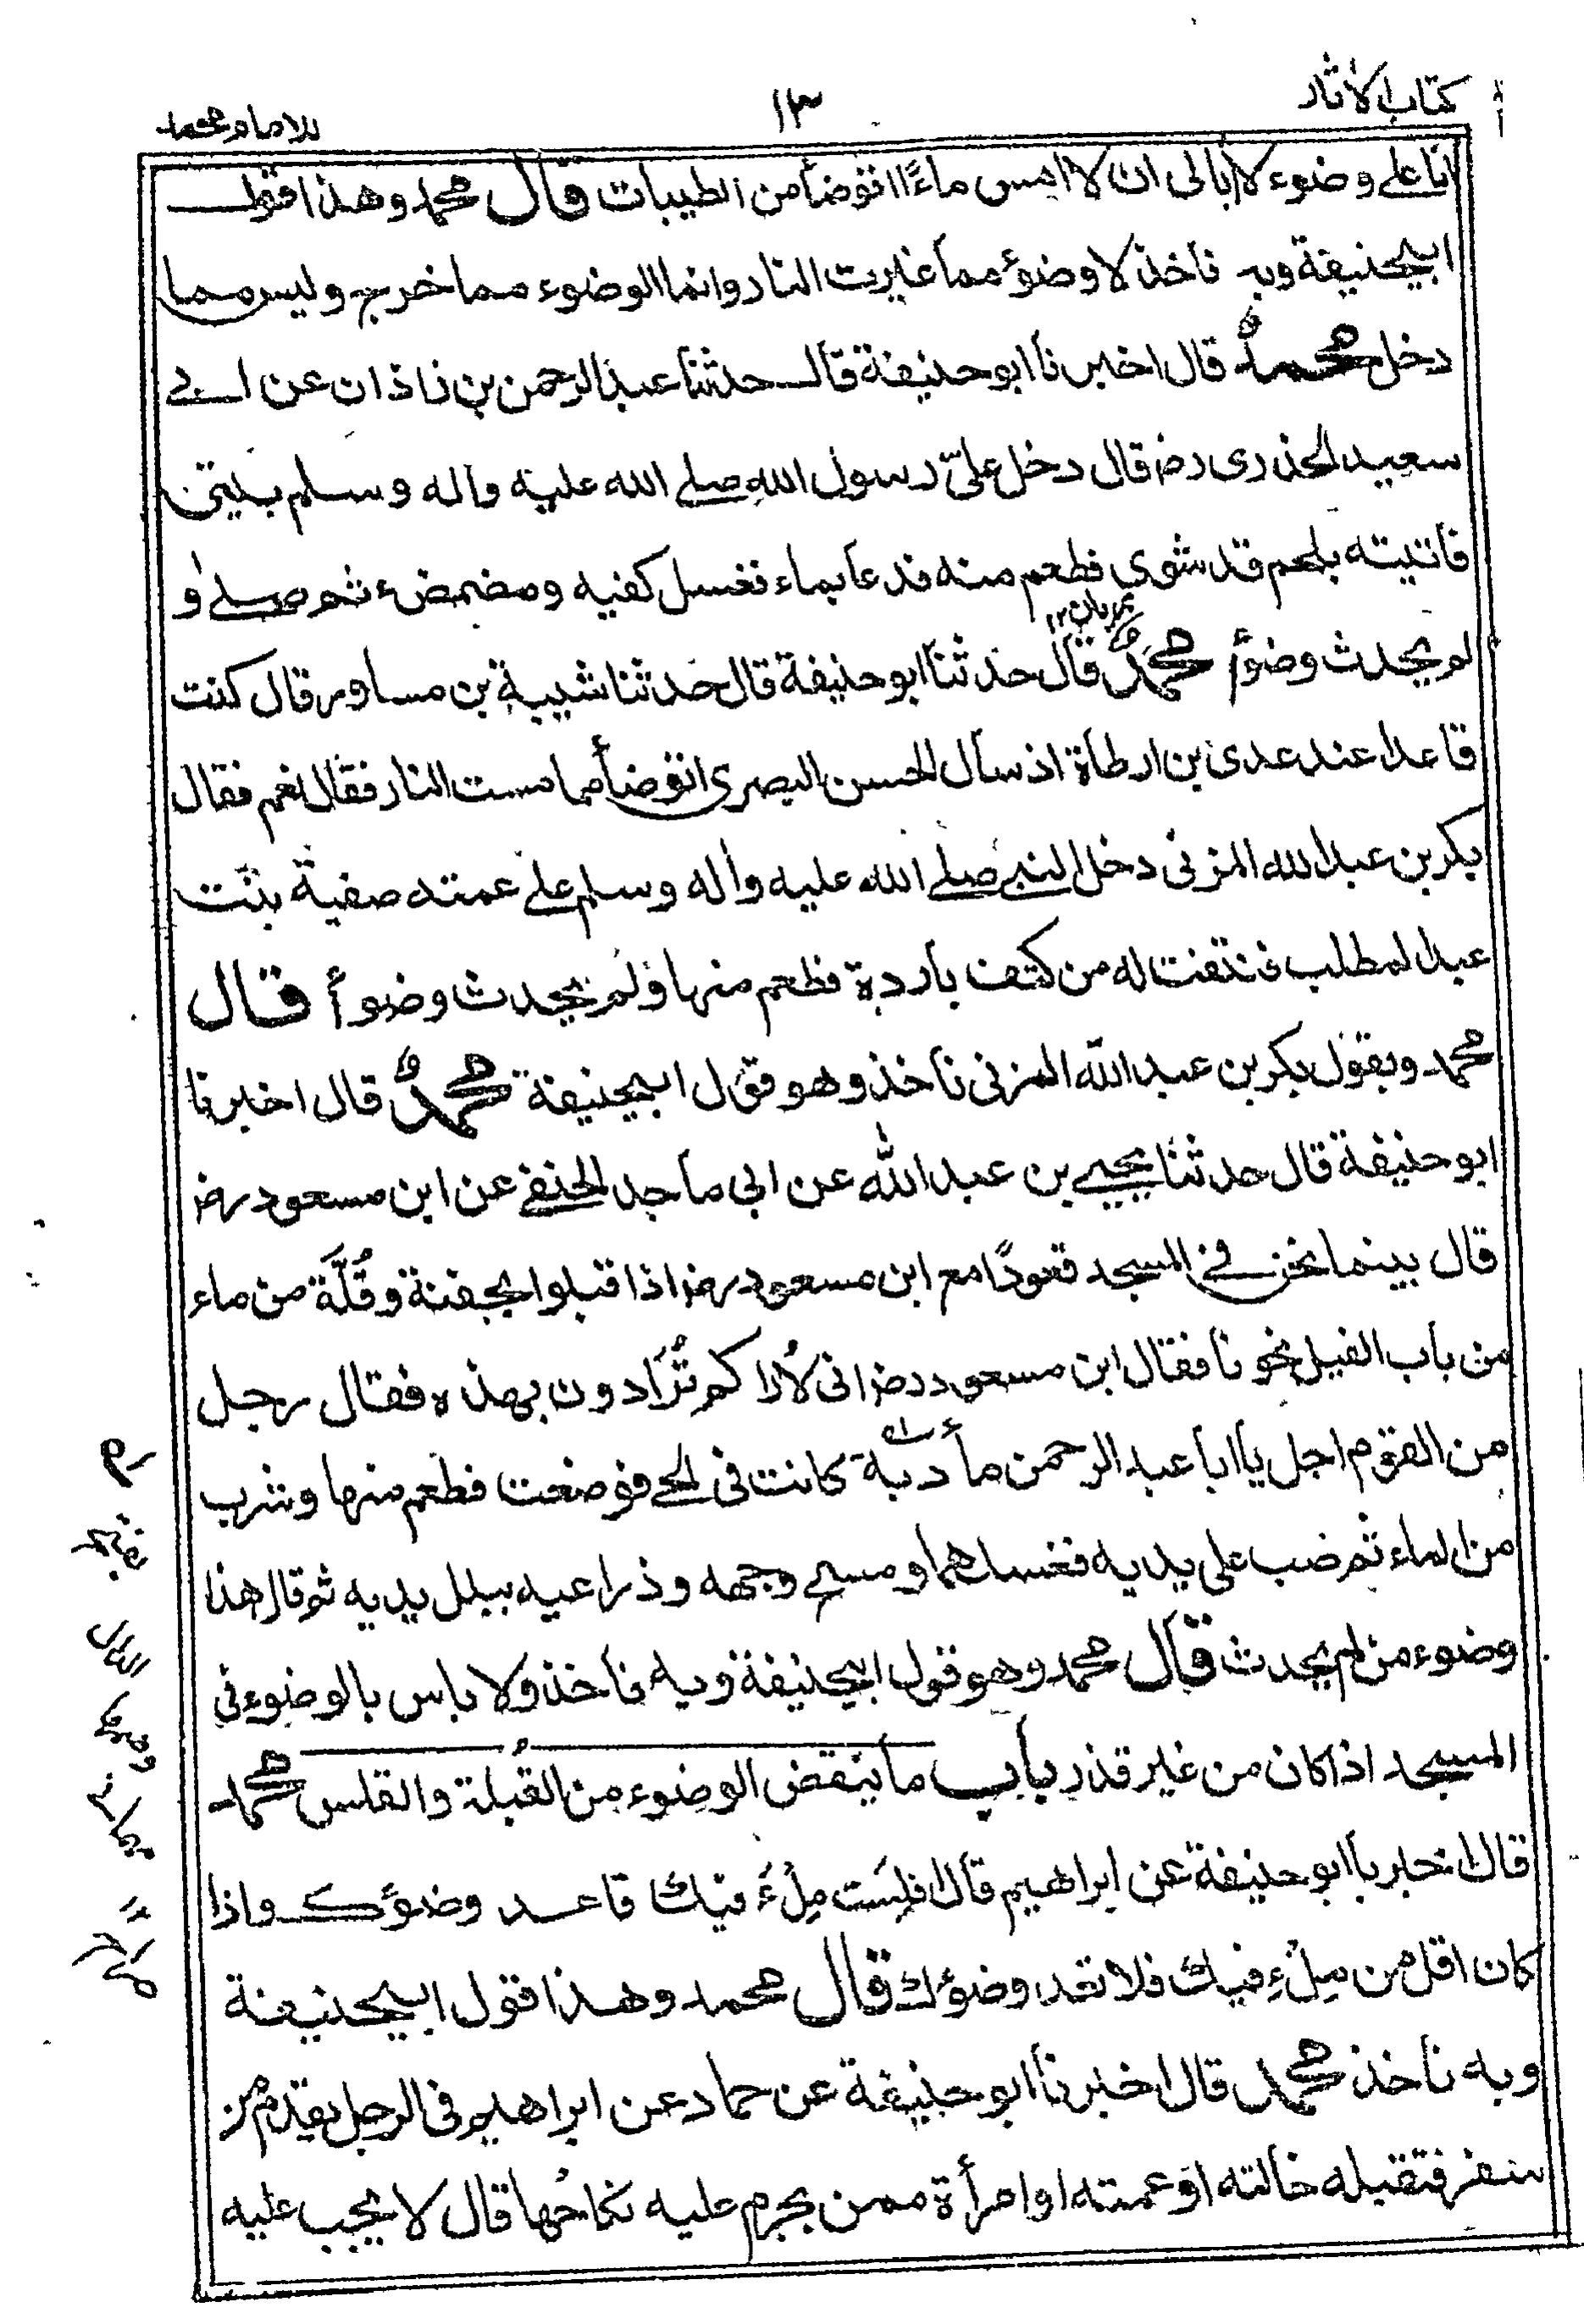 كتاب الاثار
١٣
للامام محمد
انا على وضوء لا ابالى ان لا امس ماءً أاتوضأ من الطيبات قال محمد وهذا قول
ابيحنيفة وبه ناخذ لا وضوء مما غيرت النار وانما الوضوء مما خرج وليس مما
دخل محمد قال اخبرنا ابو حنيفة قال حدثنا عبد الرحمن بن زاذان عن ابى
سعيد الخدرى رضـ قال دخل علىّ رسول الله صلى الله عليه واله وسلم بيتى
فاتيته بلحم قد شوى فطعم منه فدعا بماء فغسل كفيه ومضمض ثم صلى و
لم يحدث وضوأ محمدٌ قال حدثنا ابو حنيفة قال حدثنا شيبة بن مساور قال كنت
قاعدا عند عدى بن ارطاة اذ سأل الحسن البصرى اتوضأ مما مست النار فقال نعم فقال
بكر بن عبد الله المزنى دخل النبى صلى الله عليه واله وسلم على عمته صفية بنت
عبد المطلب فنتفت له من كتف باردة فطعم منها ولم يحدث وضوأ قال
محمد وبقول بكر بن عبد الله المزنى ناخذ وهو قول ابيحنيفة محمدٌ قال اخبرنا
ابو حنيفة قال حدثنا يحيى بن عبد الله عن ابى ماجد الحنفى عن ابن مسعود رضـ
قال بينما نحن فى المسجد قعودًا مع ابن مسعود رضـ اذا قبلوا بجفنة وقُلَّة من ماء
من باب الفيل نحونا فقال ابن مسعود رضـ انى لاُراكم تُرَادون بهذه فقال رجل
من القوم اجل يا ابا عبد الرحمن مأدبة كانت فى الحى فوضعت فطعم منها وشرب
من الماء ثم صب على يديه فغسلهما ومسح وجهه وذراعيه ببلل يديه ثم قال هذا
وضوء من لم يحدث قال محمد وهو قول ابيحنيفة وبه ناخذ ولا باس بالوضوء فى
المسجد اذا كان من غير قذر باب ما ينقض الوضوء من القُبلة والقلس محمد
قال اخبرنا ابو حنيفة عن ابراهيم قال اذا قلست مِلْءَ فيك فاعد وضوءك واذا
كان اقل من مِلْءِ فيك فلا تعد وضوءك قال محمد وهذا قول ابيحنيفة
وبه ناخذ محمد قال اخبرنا ابو حنيفة عن حماد عن ابراهيم فى الرجل يقدم من
سفر فتقبله خالته او عمته او امرأة ممن يحرم عليه نكاحها قال لا يجب عليه